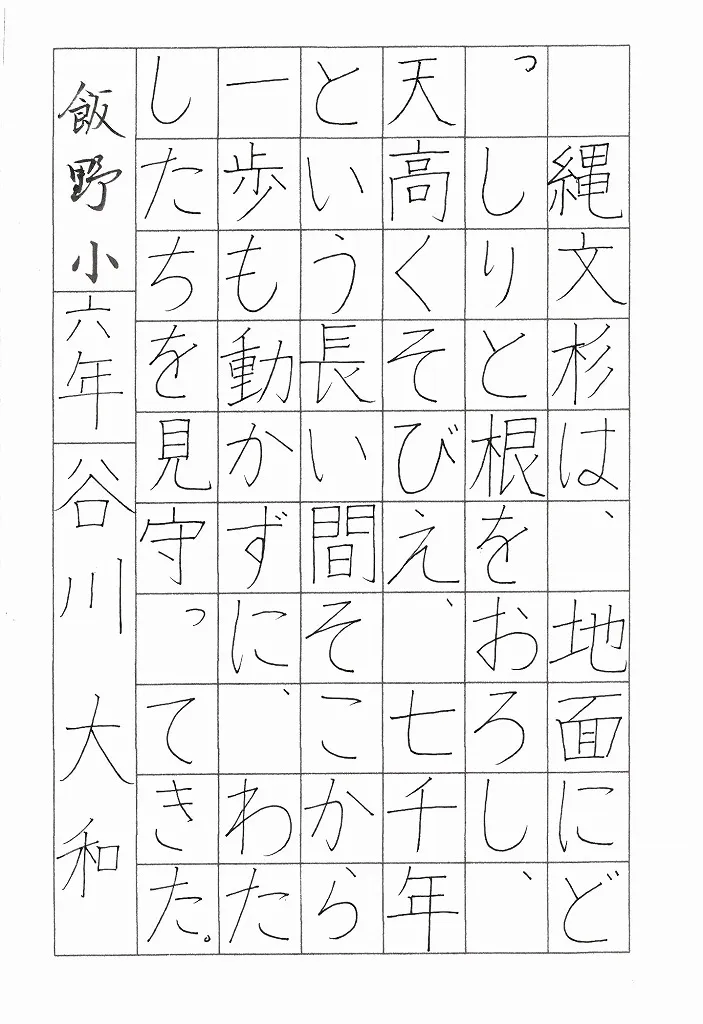 縄文杉は、地面にど
っしりと根をおろし、
天高くそびえ、七千年
という長い間そこから
一歩も動かずに、わた
したちを見守ってきた。
飯野小 六年 谷川 大和